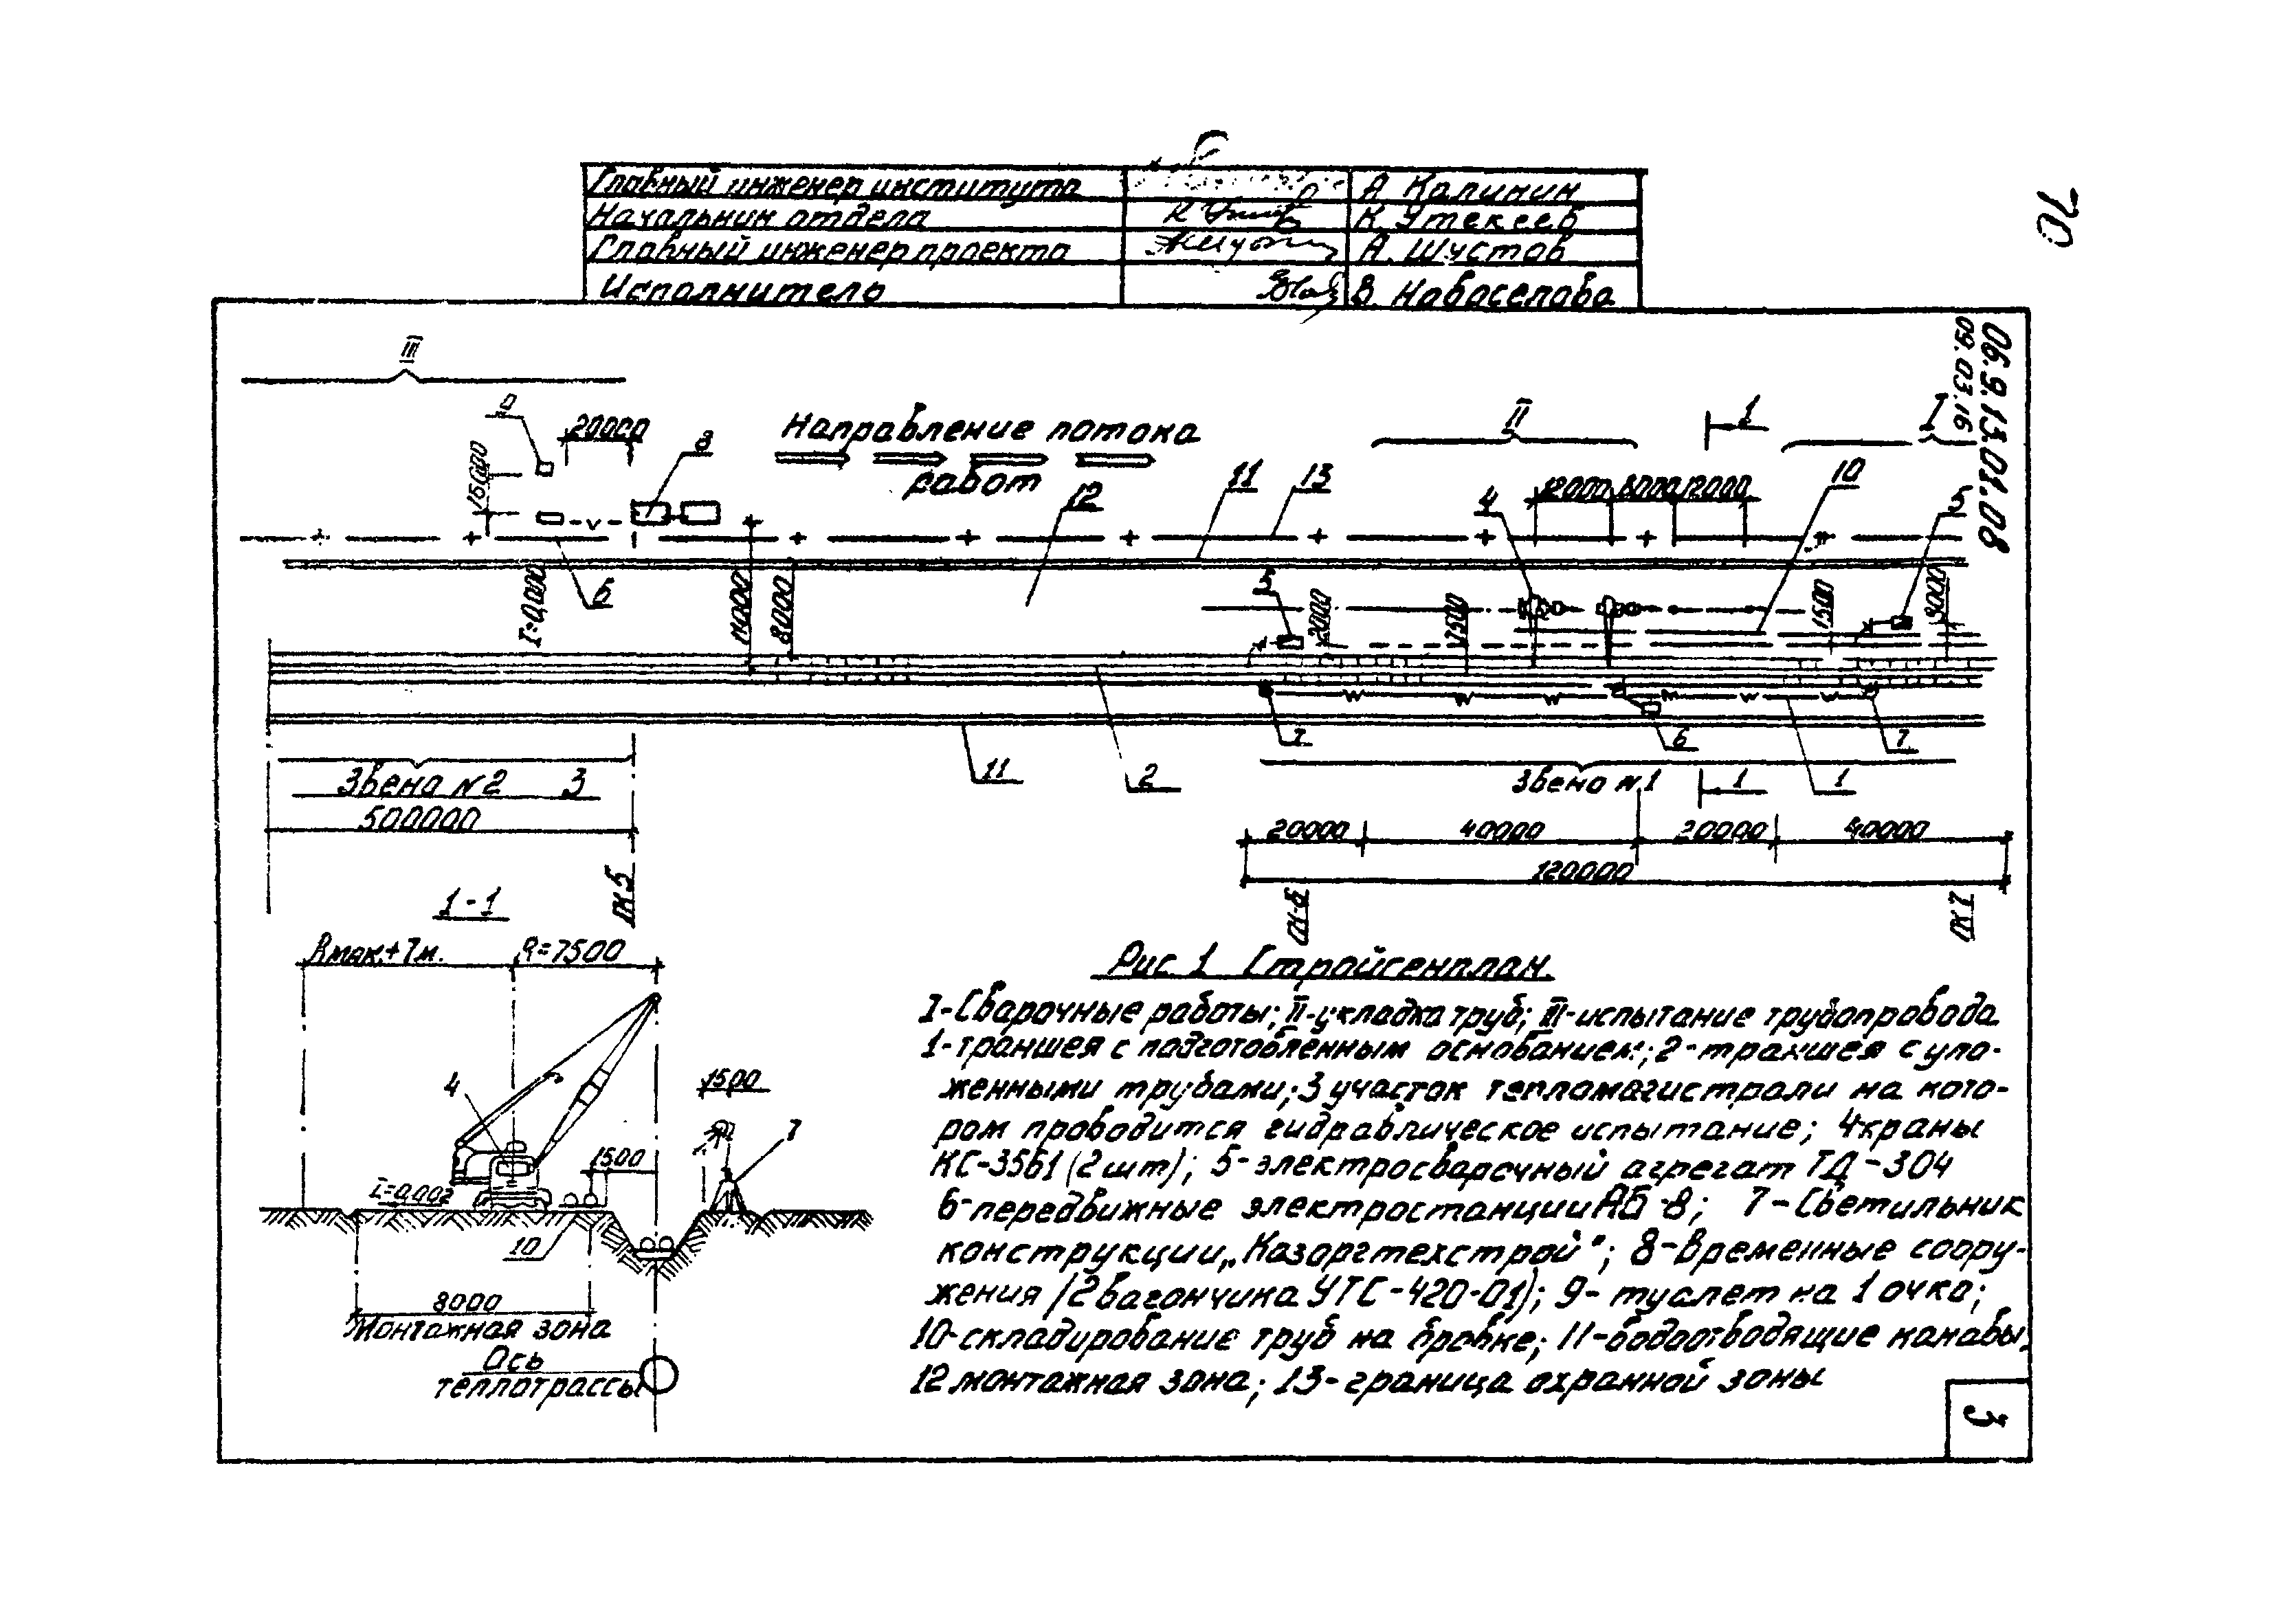 Главный инженер института А. Калинин
Начальник отдела К. Утекеев
Главный инженер проекта А. Шустов
Исполнитель В. Новоселова
70
06.9.13.01.08
09.03.16
III
II
I
1
9
20000
8
15000
Направление потока
работ
12
11
13
4
12000 8000 12000
10
5
6
8000
5
2000
7500
1500
3000
7
6
7
Звено №2 3
500000
11
2
Звено №1
1
1
20000 40000 20000 40000
120000
ПК5
ПК-6
ПК7
1-1
Rмак.+7м. R=7500
4
1500
7
1500
I=0,002
10
8000
Монтажная зона
Ось
теплотрассы
Рис 1 Стройгенплан.
I-Сварочные работы; II-укладка труб; III-испытание трубопровода
1-траншея с подготовленным основанием; 2-траншея с уло-
женными трубами; 3 участок тепломагистрали на кото-
ром проводится гидравлическое испытание; 4 краны
КС-3561 (2 шт); 5-электросварочный агрегат ТД-304
6-передвижные электростанции АБ-8; 7-Светильник
конструкции „Казоргтехстрой"; 8-Временные соору-
жения /2 вагончика УТС-420-01); 9-туалет на 1 очко;
10-складирование труб на бровке; 11-водоотводящие канавы,
12 монтажная зона; 13-граница охранной зоны
3